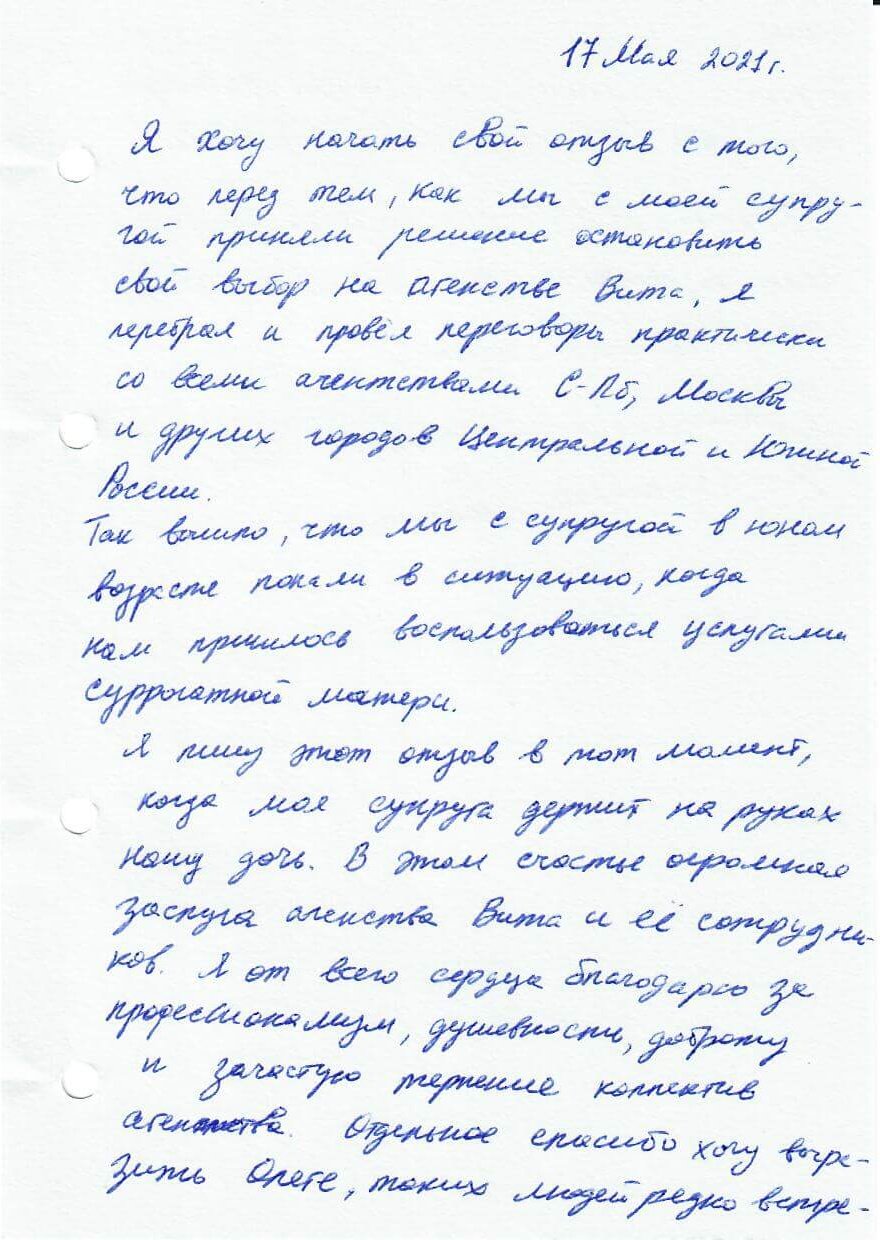 17 Мая 2021г.
Я хочу начать свой отзыв с того,
что перед тем, как мы с моей супру-
гой приняли решение остановить
свой выбор на агенстве Вита, я
перебрал и провёл переговоры практически
со всеми агентствами С-Пб, Москвы
и других городов Центральной и Южной
России.
Так вышло, что мы с супругой в юном
возрасте попали в ситуацию, когда
нам пришлось воспользоваться услугами
суррогатной матери.
Я пишу этот отзыв в тот момент,
когда моя супруга держит на руках
нашу дочь. В этом счастье огромная
заслуга агенства Вита и её сотрудни-
ков. Я от всего сердца благодарю за
профессионализм, душевность, доброту
и зачастую терпение коллектив
агентства. Отдельное спасибо хочу выра-
зить Олегу, таких людей редко встре-